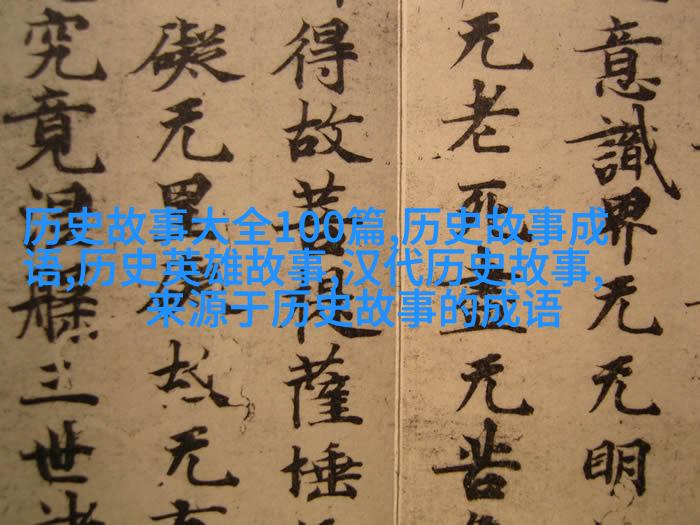 意識界无无明
无老死盡无苦
得故菩提薩埵
礙无罣礙故无有
究竟涅槃三世諸
历史故事大全100篇,历史故事成
语,历史英雄故事,汉代历史故事,
来源于历史故事的成语